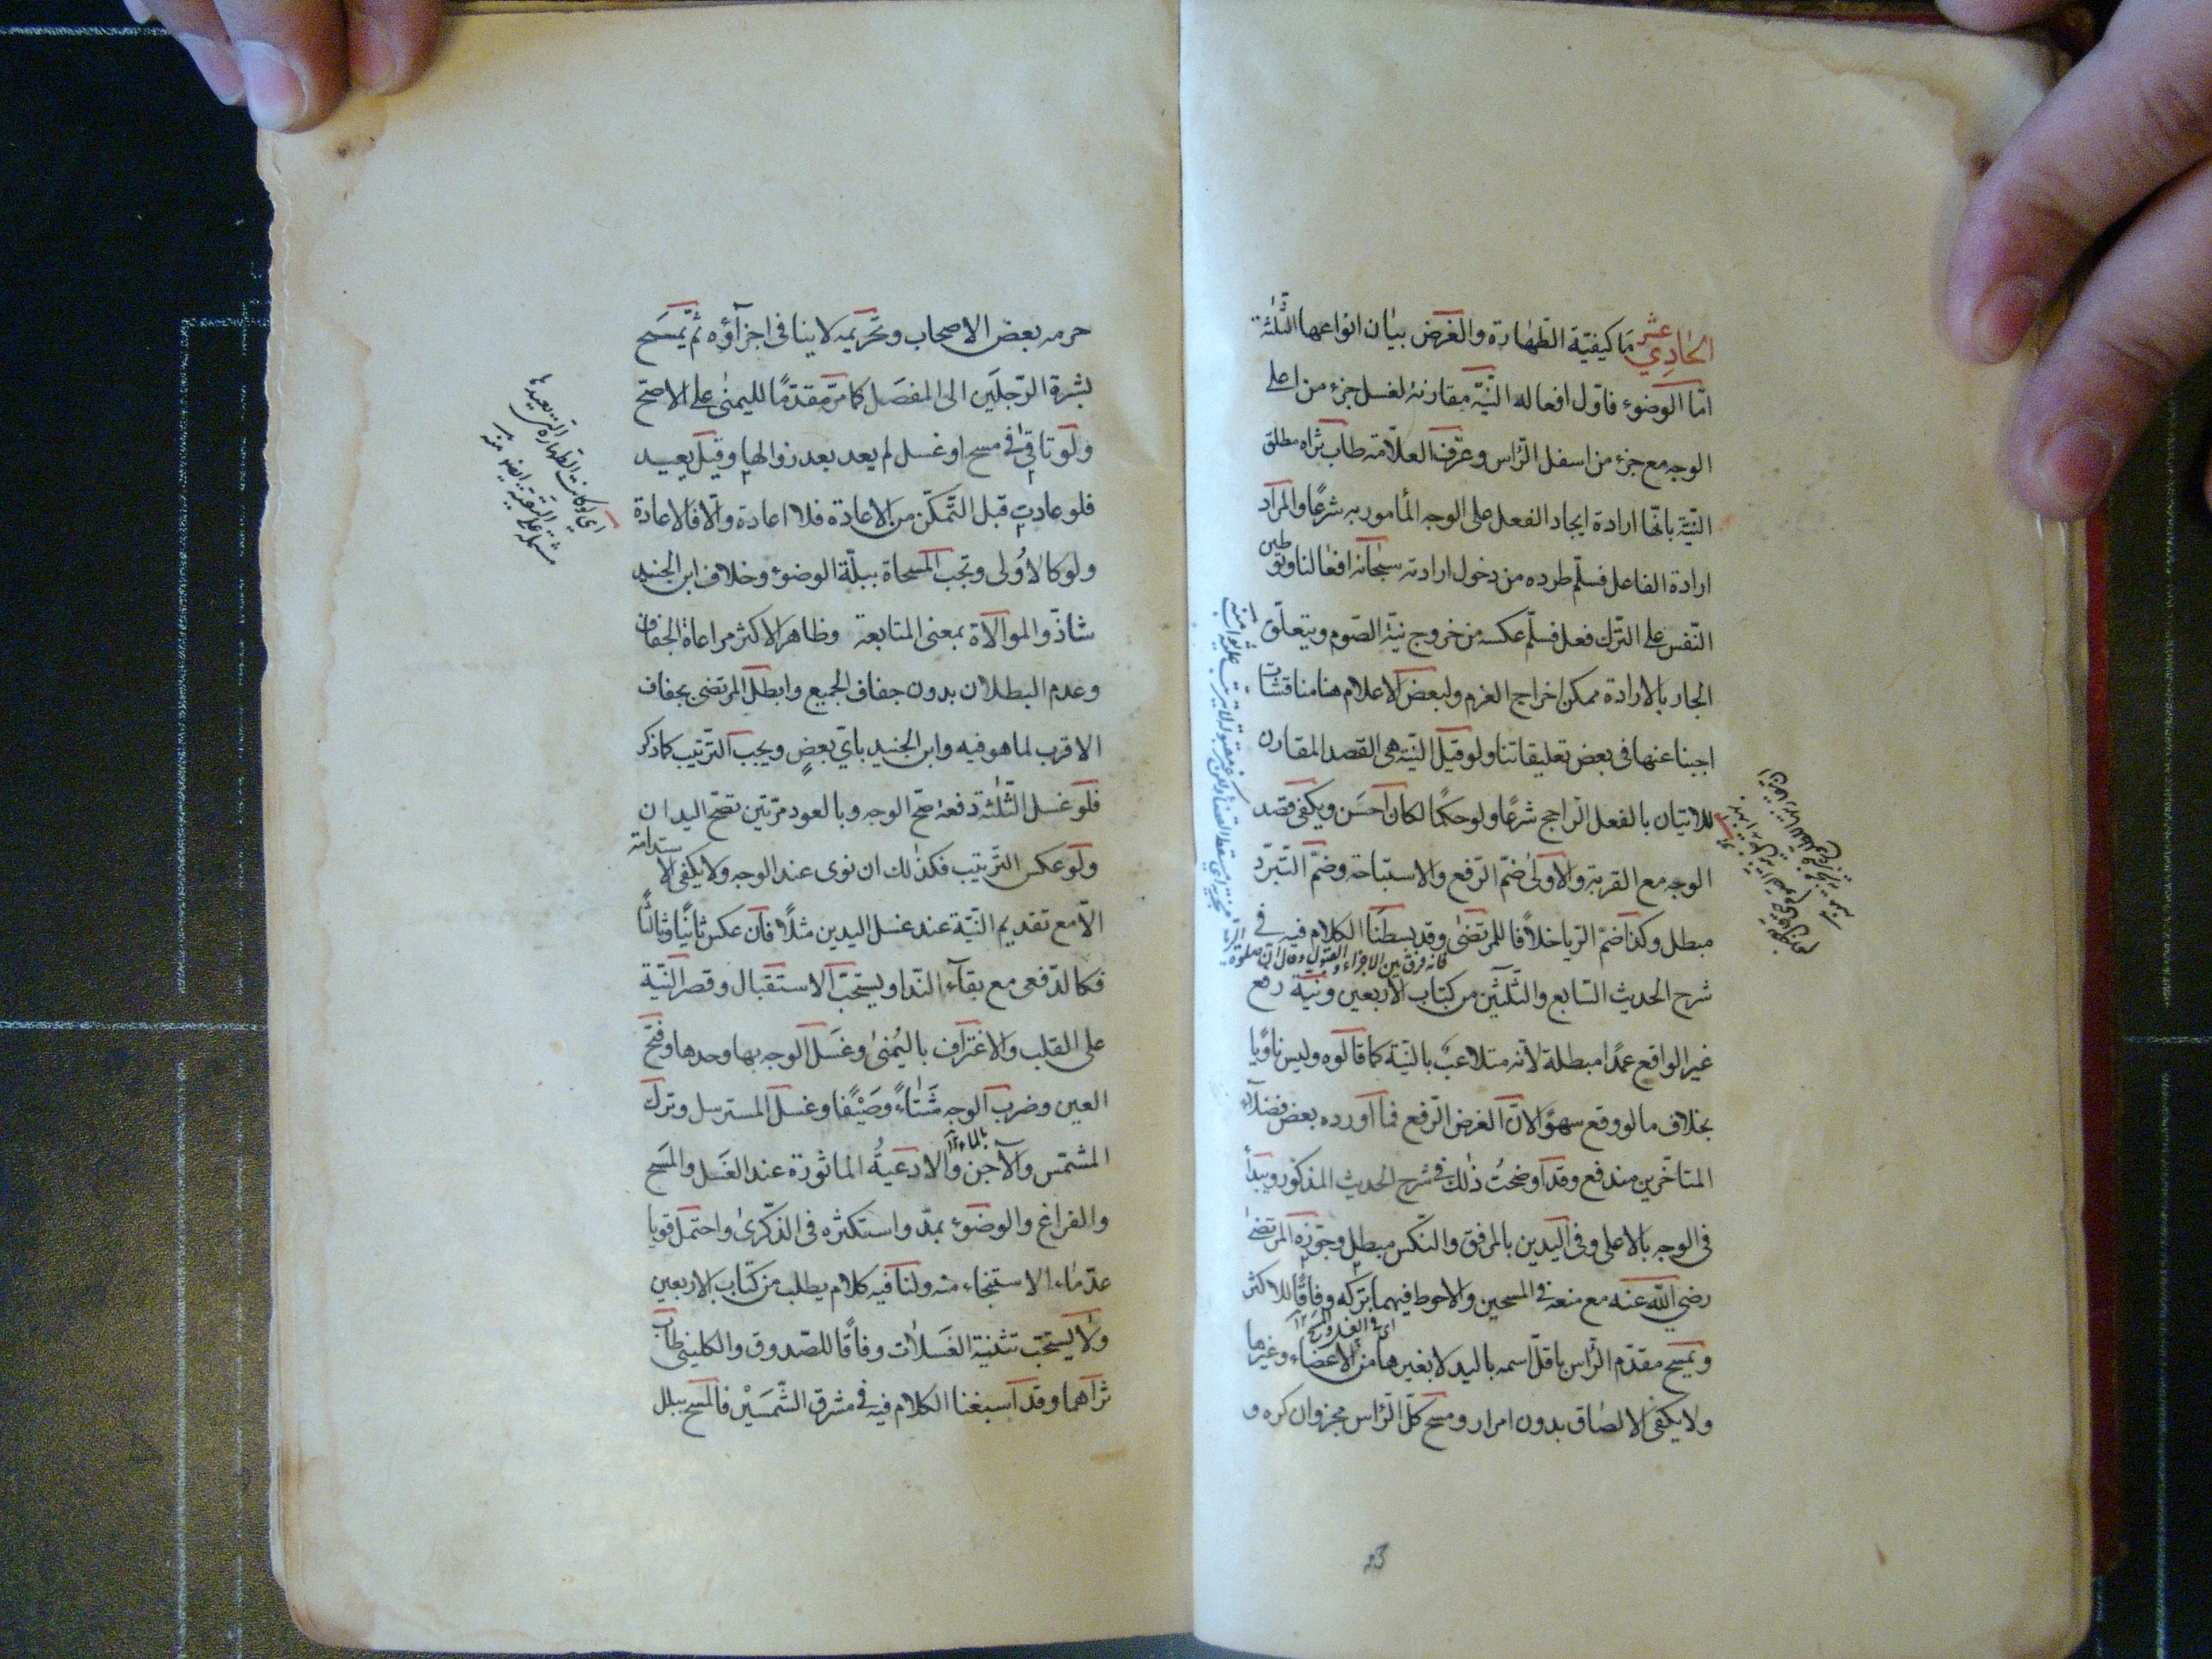 الحادي عشر ما كيفيّة الطّهارة والغرض بيان انواعها الثّلثة
امّا الوضوء فاوّل افعاله النّيّة مقارنة لغسل جزء من اعلى
الوجه مع جزء من اسفل الرّاس وعرّف العلّامة طاب ثراه مطلق
النّيّة بانّها ارادة ايجاد الفعل على الوجه المأمور به شرعًا والمراد
ارادة الفاعل فسلم طرده من دخول ارادته سبحانه افعالنا وتوطين
النّفس على التّرك فعل فسلم عكسه من خروج نيّة الصّوم وبتعلّق
الجار بالارادة يمكن اخراج العزم ولبعض الاعلام هنا مناقشات
اجبنا عنها في بعض تعليقاتنا ولو قيل النّيّة هى القصد المقارن
للاتيان بالفعل الرّاجح شرعًا ولو حكمًا لكان احسن ويكفى قصد
الوجه مع القربة والاولى ضمّ الرّفع والاستباحة وضمّ التّبرّد
مبطل وكذا ضمّ الرّيا خلافًا للمرتضى وقد بسطنا الكلام فيه في
فانه فرق بين الاجزاء والقبول وقال ان صلوة
شرح الحديث السّابع والثّلثين من كتاب الاربعين ونيّة رفع
غير الواقع عمدًا مبطلة لانّه متلاعب بالنّيّة كما قالوه وليس ناويا
بخلاف ما لو وقع سهوًا لانّ الغرض الرّفع فما اورده بعض فضلاء
المتاخّرين مندفع وقد اوضحت ذلك في شرح الحديث المذكور ويبدأ
فى الوجه بالاعلى وفى اليدين بالمرفق والنّكس مبطل وجوّزه المرتضى
رضي الله عنه مع منعه في المسحين والاحوط فيهما تركه وفاقًا للاكثر
اي في الغسل والمسح ١٢
ويمسح مقدّم الرّأس باقلّ اسمه باليد لا بغيرها من الاعضاء وغيرها
ولا يكفى الالصاق بدون امرار ومسح كلّ الرّأس مجز وان كره و
23
حرمه بعض الاصحاب وتحريمه لا ينافى اجزآؤه ثمّ يمسح
بشرة الرّجلين الى المفصل كما مرّ مقدّمًا لليمنى على الاصحّ
ولو تاقى في مسح او غسل لم يعد بعد زوالها وقيل يعيد
فلو عادت قبل التّمكّن من الاعادة فلا اعادة والّا فالاعادة
ولو كالاولى وتجب المسحاة ببلّة الوضوء وخلاف ابن الجنيد
شاذّ والموالاة بمعنى المتابعة وظاهر الاكثر مراعاة الجفاف
وعدم البطلان بدون جفاف الجميع وابطل المرتضى بجفاف
الاقرب لما هو فيه وابن الجنيد بايّ بعض ويجب التّرتيب كما ذكر
فلو غسل الثّلثة دفعة صحّ الوجه وبالعود مرّتين تصحّ اليدان
ولو عكس التّرتيب فكذلك ان نوى عند الوجه ولا يكفى الاستدامة
الّا مع تقديم النّيّة عند غسل اليدين مثلًا فان عكس ثانيًا وثالثًا
فكالدّفعى مع بقآء النّدا ويستحبّ الاستقبال وقصر النّيّة
على القلب والاغتراف باليمنى وغسل الوجه بها وحدها وفتح
العين وضرب الوجه شتاءً وصيفًا وغسل المسترسل وترك
المشمّس والآجن والادعية الماثورة عند الغسل والمسح
بالماء ١٢
والفراغ والوضوء بمدّ واستكثره فى الذّكرى واحتمل قويا
عدّ ماء الاستنجاء منه ولنا فيه كلام يطلب من كتاب الاربعين
ولا يستحب تثنية الغسلات وفاقًا للصّدوق والكليني طاب
ثراهما وقد اسبغنا الكلام فيه في مشرق الشّمسين فالمسح ببلل
اي لو كانت الطهارة التي يعيدها
مشتملة على التقية ايضا منه